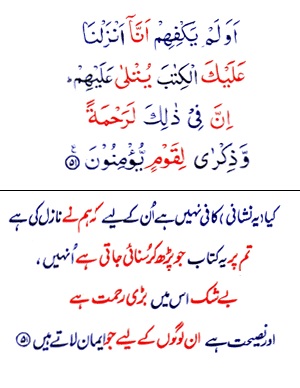 اَوَلَمْ يَكْفِهِمْ اَنَّاۤ اَنْزَلْنَا
عَلَيْكَ الْكِتٰبَ يُتْلٰى عَلَيْهِمْ ؕ
اِنَّ فِيْ ذٰلِكَ لَرَحْمَةً
وَّذِكْرٰى لِقَوْمٍ يُّؤْمِنُوْنَ ۵۱
کیا (یہ نشانی) کافی نہیں ہے اُن کے لیے کہ ہم نے نازل کی ہے
تم پر یہ کتاب جو پڑھ کر سُنائی جاتی ہے اُنہیں،
بے شک اس میں بڑی رحمت ہے
اور نصیحت ہے ان لوگوں کے لیے جو ایمان لاتے ہیں ۵۱